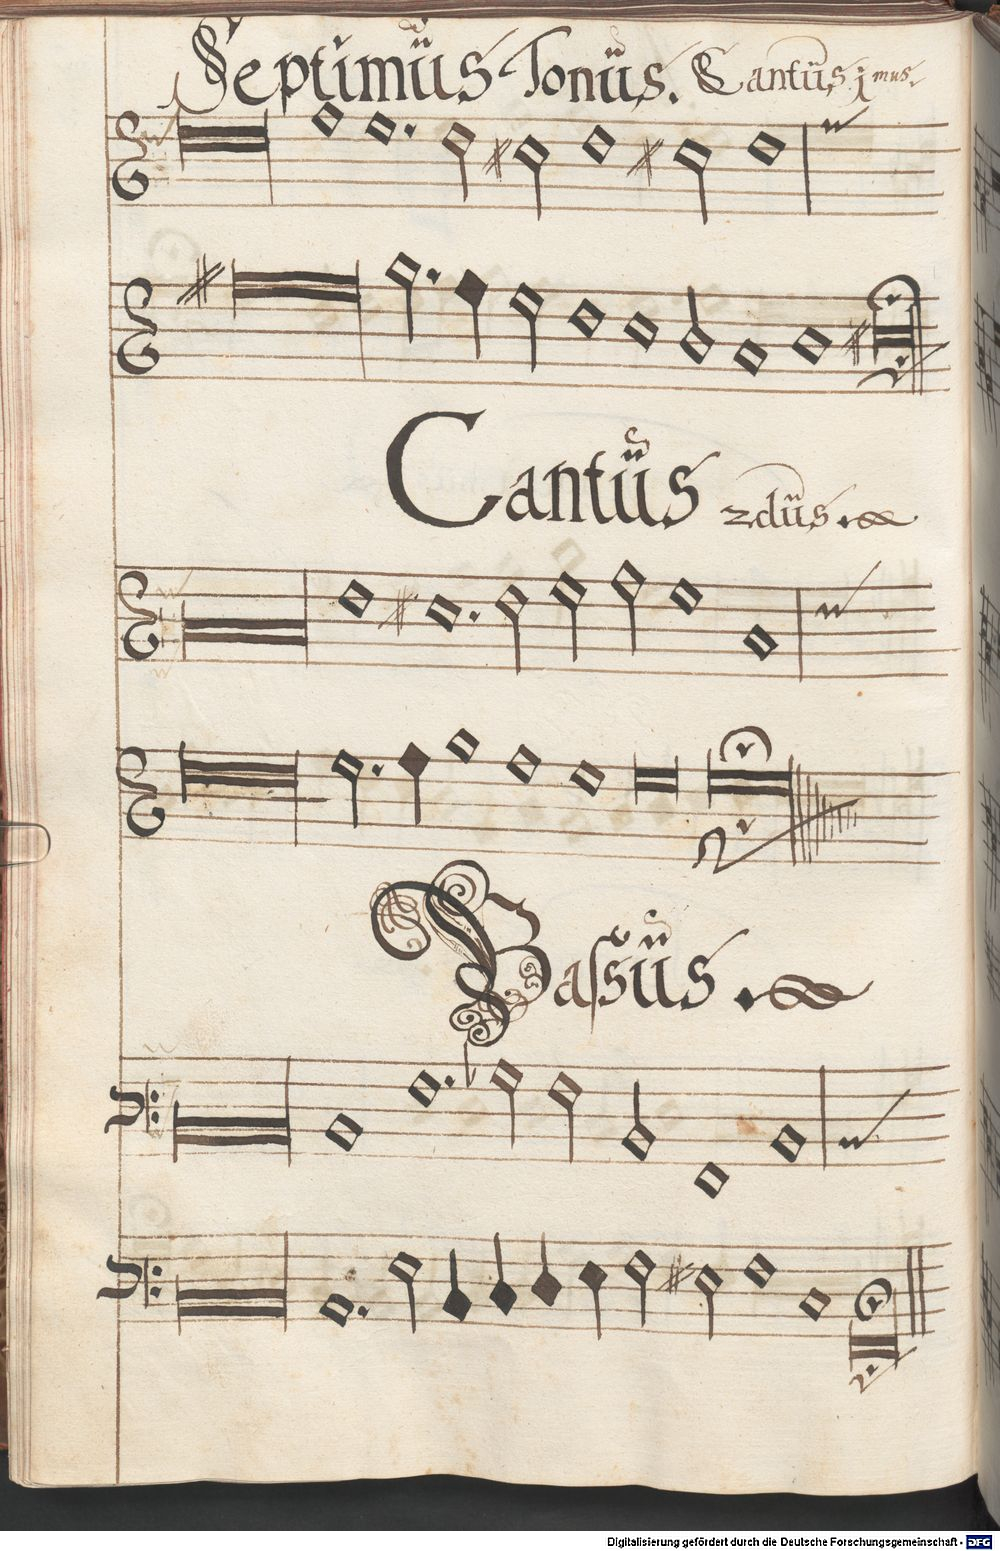 Septimus Tonus. Cantus jmus.
Cantus 2dus.
Bassus.
Digitalisierung gefördert durch die Deutsche Forschungsgemeinschaft - DFG